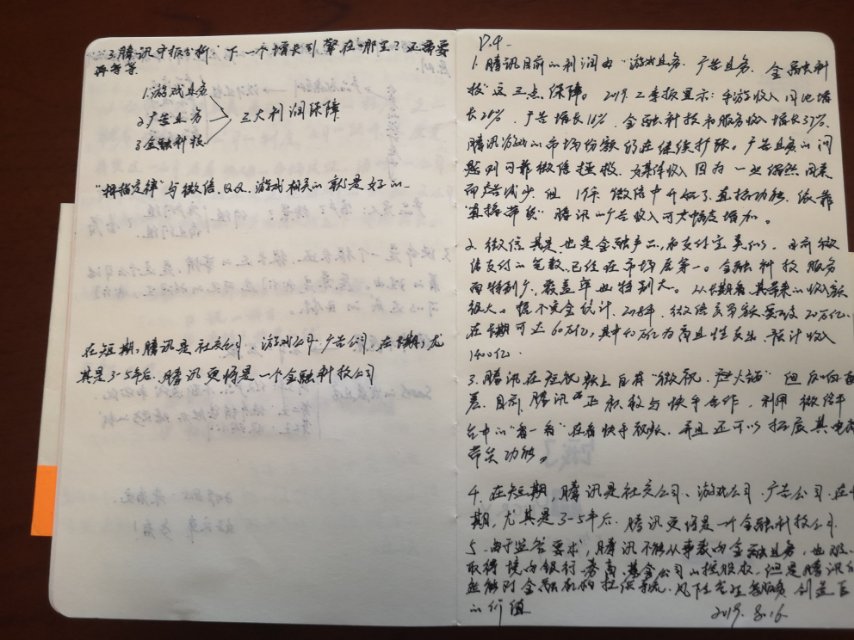 “3.腾讯财报分析”下一个增长引擎在哪里?还需要
再等等
1.游戏业务
2.广告业务 3大利润保障
3.金融科技
与微信、QQ、游戏相关的都是好的
在短期,腾讯是社交公司、游戏公司、广告公司,在长期,尤
其是3-5年后,腾讯更将是一个金融科技公司
P.4.
1.腾讯目前的利润由“游戏业务、广告业务、金融科
技”这三点保障。2019.2季报显示:手游收入同比增
长26%,广告增长16%,金融科技和服务收入增长37%。
腾讯游戏的市场份额仍在继续扩张。广告业务的问
题则可靠微信拯救,媒体收入因为一些偶然因素
而有减少,但微信中开始了直播功能,依靠
“直播带货”腾讯的广告收入可大幅度增加。
2.微信其实也是金融产品,和支付宝类似。目前微
信支付的笔数已经在市场居第一。金融科技服务
面特别广,覆盖率也特别大。从长期看,其带来的收入额
很大。据不完全统计,2018年,微信交易额突破20万亿,
在长期可达60万亿,其中40万亿为商业性支出,预计收入
1400亿.
3.腾讯在短视频上自有“微视、”但反响
差,目前,腾讯也正积极与快手合作,利用微信平
台中的“看一看”在看快手视频,并且还可以拓展其电商
带货功能。
4.在短期,腾讯是社交公司、游戏公司、广告公司,在长
期,尤其是3-5年后,腾讯更将是一个金融科技公司.
5.由于监管要求,腾讯不能从事表内金融业务,也难
取得境内银行、券商、基金公司的控股权,但是腾讯
能对金融机构提供系统、风险管理等服务,创造巨
的价值
2019.8.16